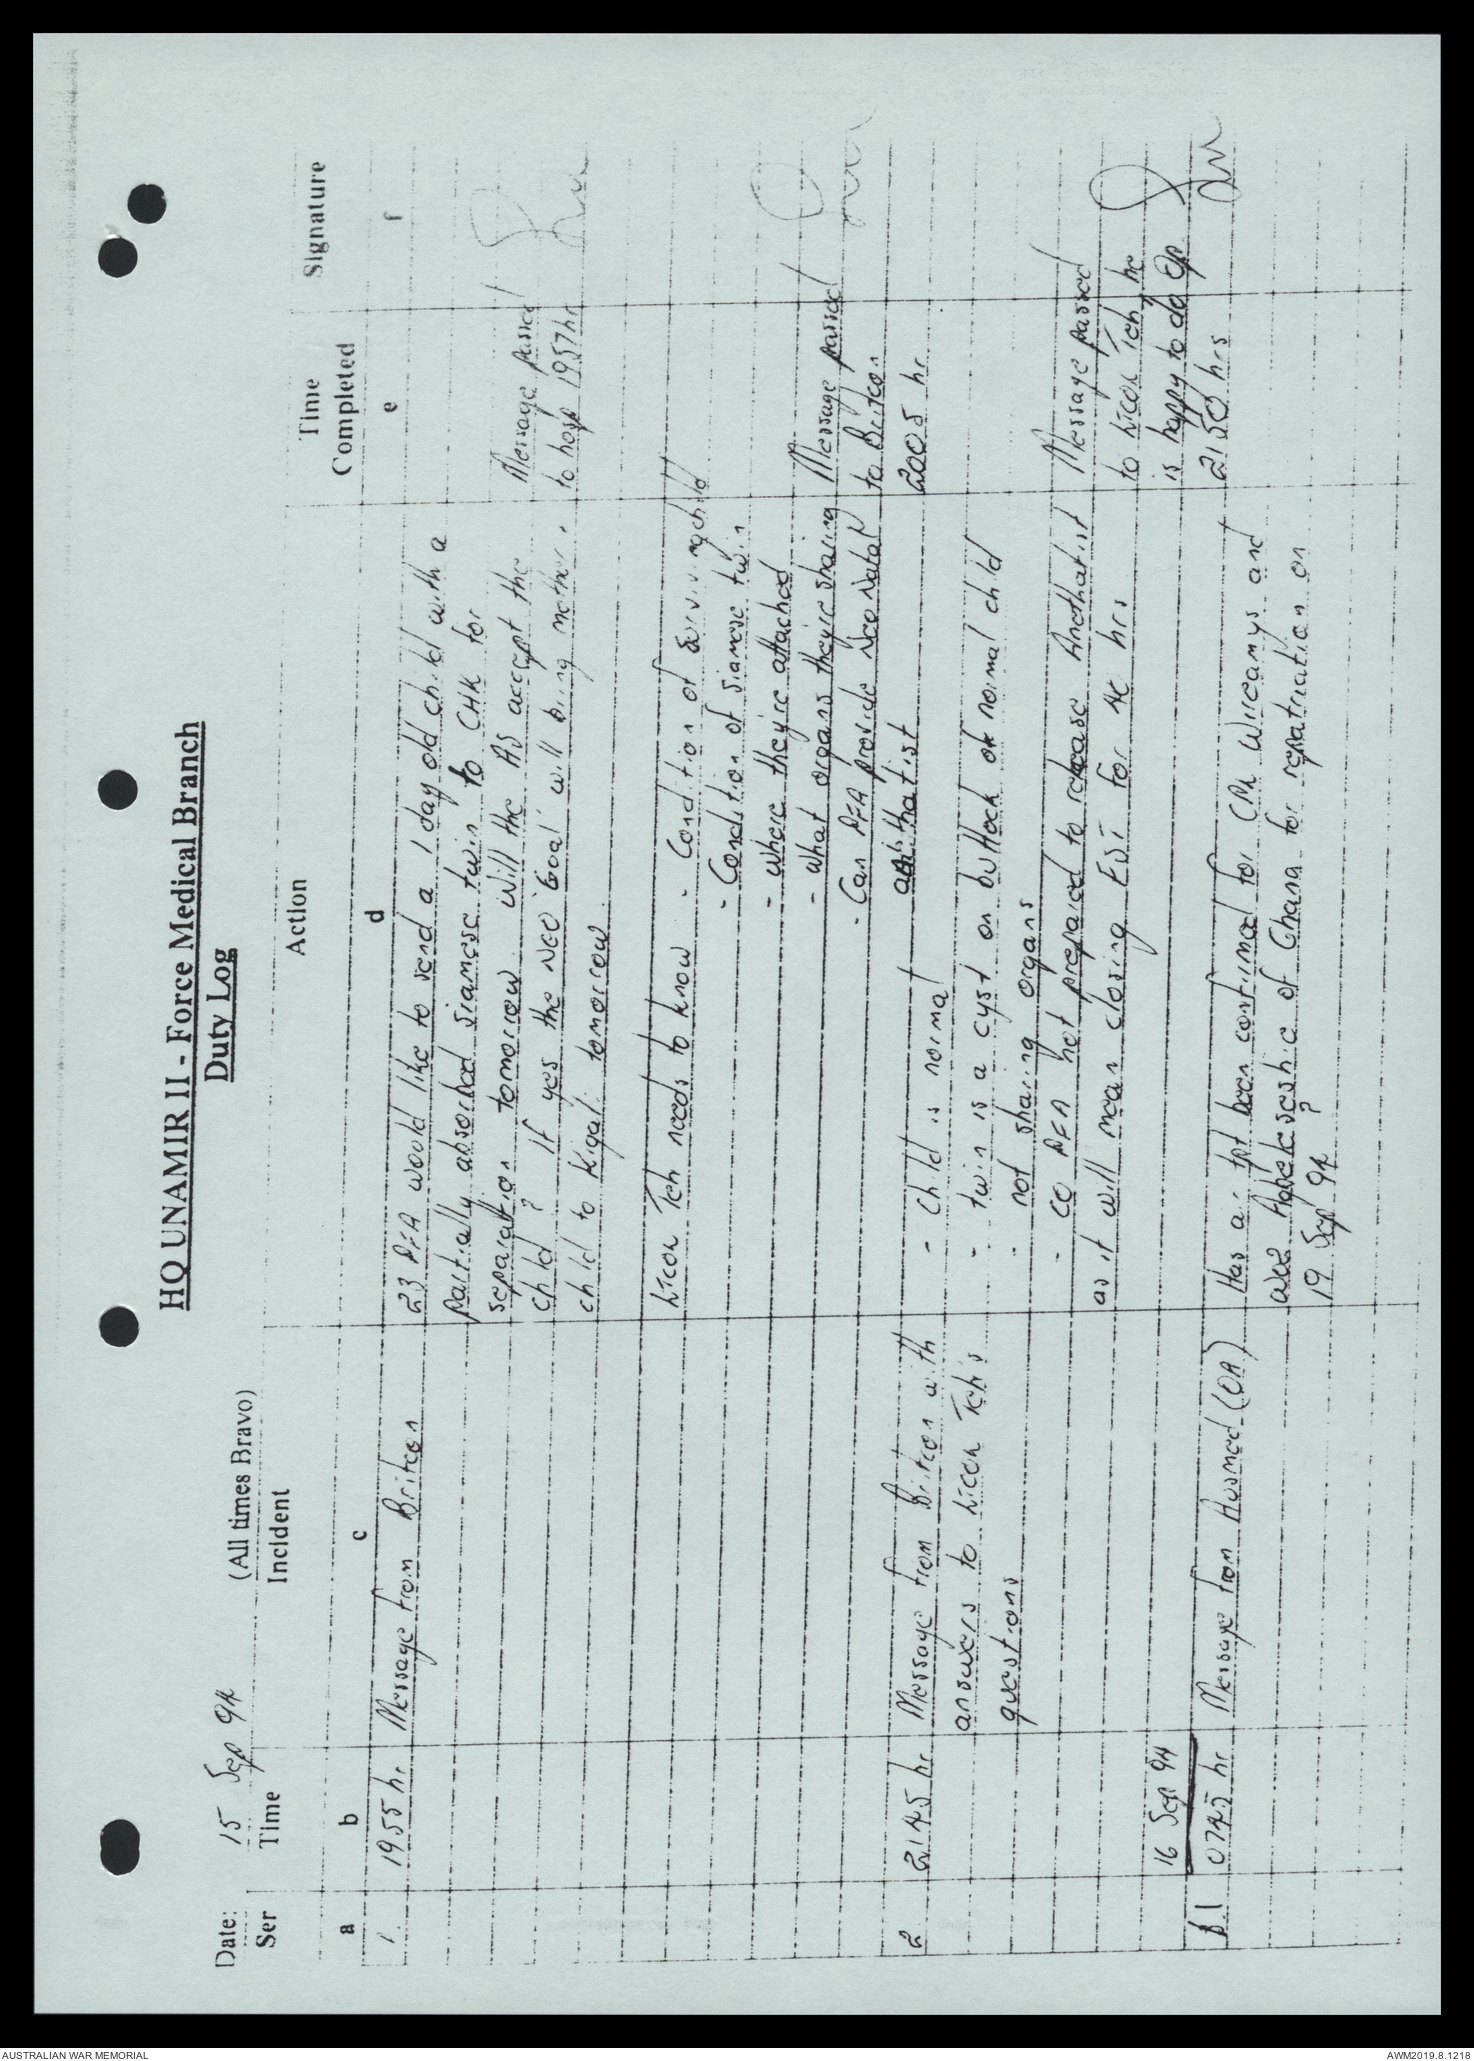 HQ UNAMIR II - Force Medical Branch
Duty Log
Date: 15 Sep 94 (All times Bravo)
Ser Time Incident Action Time Completed Signature
a b c d e f
1. 1955 hr Message from Britcon 23 PFA would like to send a 1 day old child with a
partially absorbed siamese twin to CHK for
separation tomorrow. Will the AS accept the Message passed
child? If yes the NGO 'Goal' will bring mother & to hosp 1957hr
child to Kigali tomorrow.
Ltcol Teh needs to know - Condition of surviving child
- Condition of siamese twin
- Where they're attached
- What organs they're sharing Message passed
- Can PFA provide Neo Natal to Britcon
anithatist 2005 hr
2. 2145 hr Message from Britcon with - Child is normal
answers to Ltcol Teh's - twin is a cyst on buttock of normal child
questions - not sharing organs
- CO PFA not prepared to release Anethatist Message passed
as it will mean closing FST for 4c hrs to Ltcol Teh, he
is happy to do Op
16 Sep 94 2150 hrs
1 0745 hr Message from Ausmed (OR) Has air tpt been confirmed for CPL and
WO2 of Ghana for repatriation on
19 Sep 94?
AUSTRALIAN WAR MEMORIAL
AWM2019.8.1218